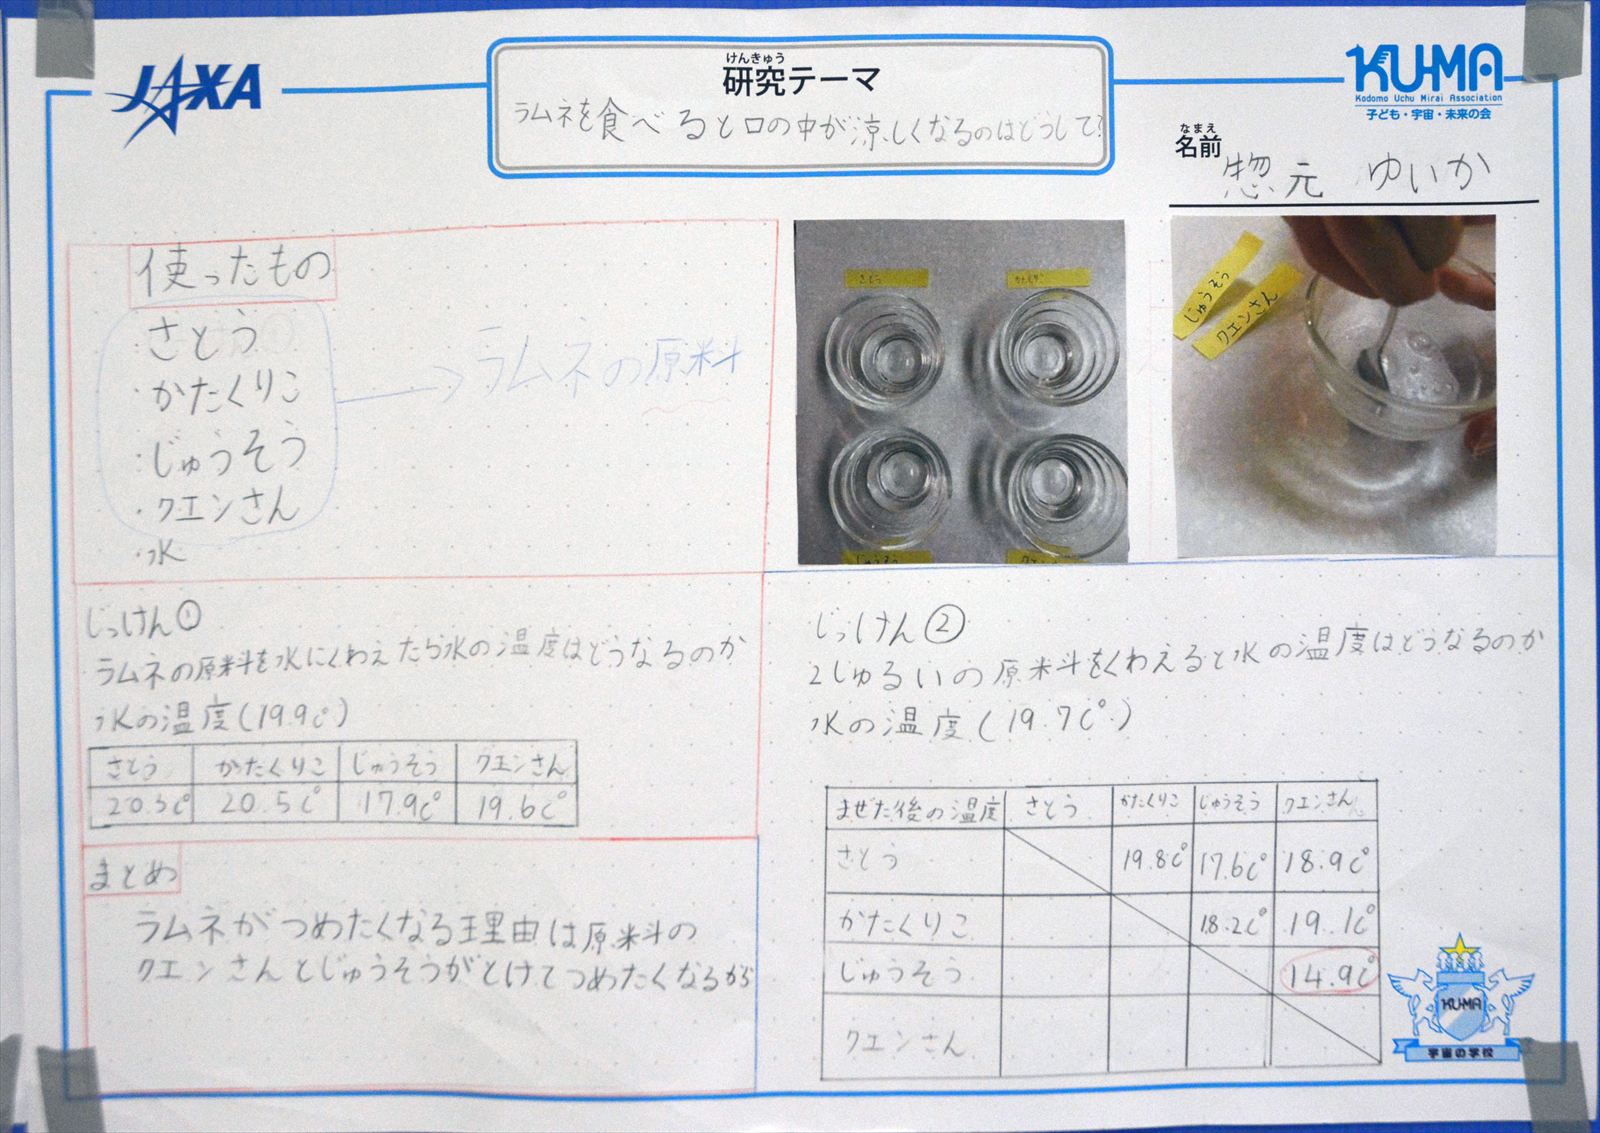 JAXA
けんきゅう
研究テーマ
ラムネを食べると口の中が涼しくなるのはどうして?
KU-MA
Kodomo Uchu Mirai Association
子ども・宇宙・未来の会
なまえ
名前
惣元 ゆいか
使ったもの
・さとう
・かたくりこ
・じゅうそう
・クエンさん
・水
ラムネの原料
さとう
かたくりこ
じゅうそう
クエンさん
じゅうそう
クエンさん
じっけん①
ラムネの原料を水にくわえたら水の温度はどうなるのか
水の温度(19.9C°)
さとう かたくりこ じゅうそう クエンさん
20.3C° 20.5C° 17.9C° 19.6C°
まとめ
ラムネがつめたくなる理由は原料の
クエンさんとじゅうそうがとけてつめたくなるから
じっけん②
2しゅるいの原料をくわえると水の温度はどうなるのか
水の温度(19.7C°)
まぜた後の温度 さとう かたくりこ じゅうそう クエンさん
さとう 19.8C° 17.6C° 18.9C°
かたくりこ 18.2C° 19.1C°
じゅうそう 14.9C°
クエンさん
KU-MA
宇宙の学校